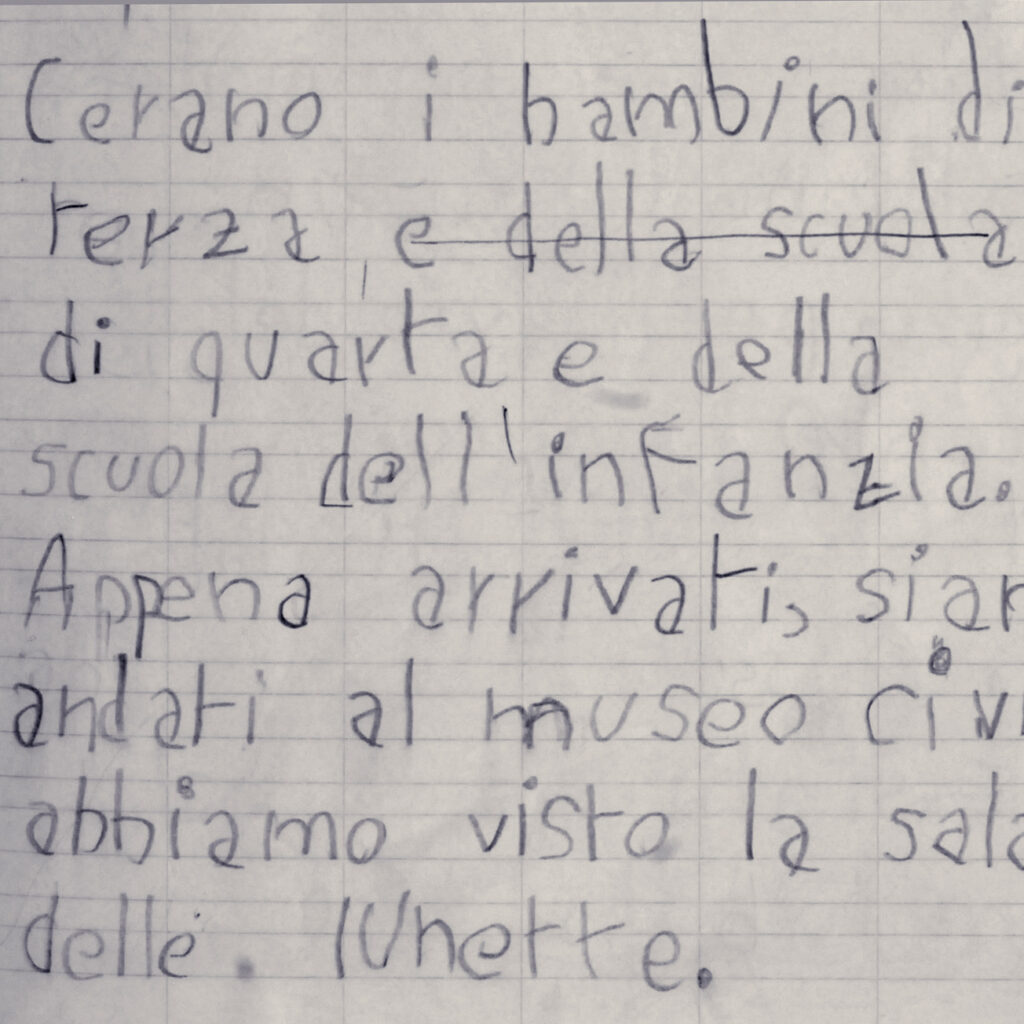 Cerano i bambini di
terza, e della scuola
di quarta e della
scuola dell'infanzia.
Appena arrivati, siam
andati al museo civi
abbiamo visto la sala
delle. lunette.